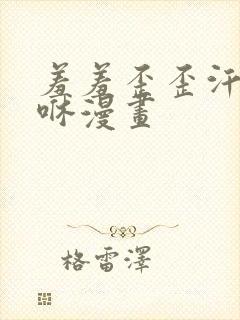 羞羞歪歪汗
咻漫畫
格雷澤